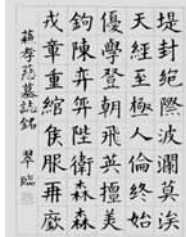 堤封絕際波瀾莫涘
天經至極人倫終始
優學登朝飛英擅美
鉤陳弈弈陛衛森森
戎章重綰侯服再廞
蘓孝慈墓誌銘 翠臨